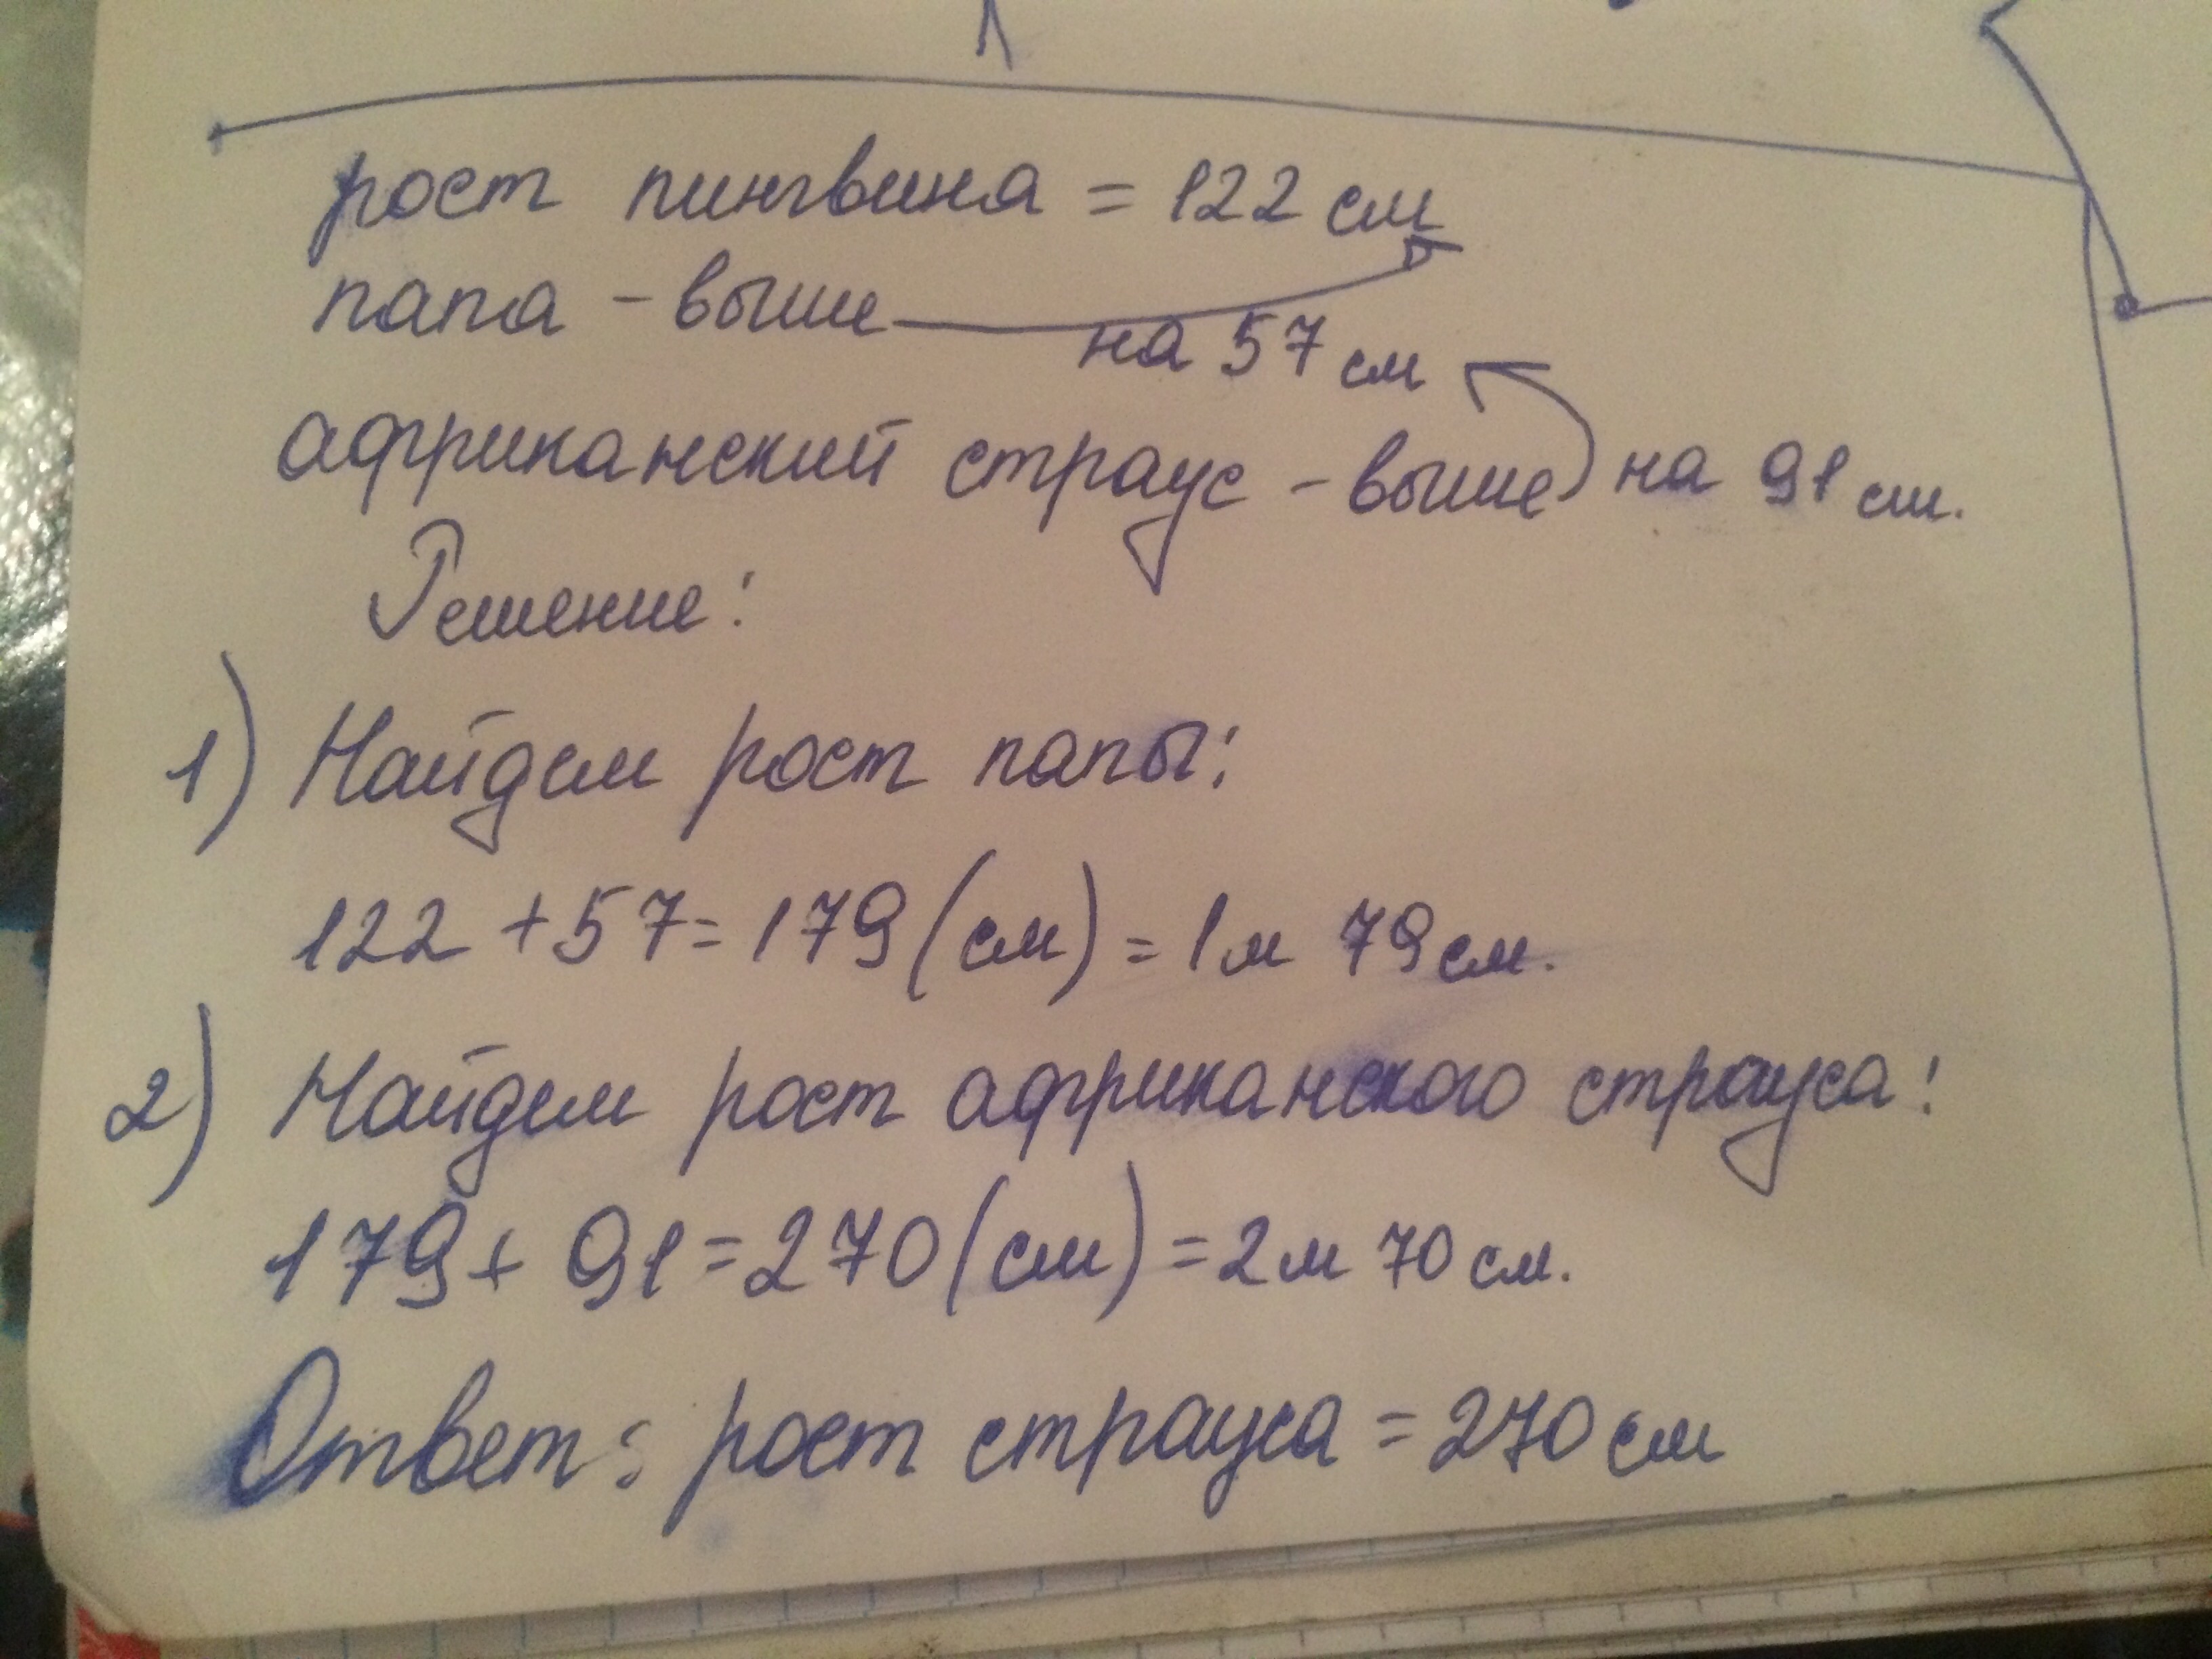 рост пингвина = 122 см
папа - выше
на 57 см
африканский страус - выше на 91 см.
Решение:
1) Найдем рост папы:
122 + 57 = 179 (см) = 1 м 79 см.
2) Найдем рост африканского страуса:
179 + 91 = 270 (см) = 2 м 70 см.
Ответ: рост страуса = 270 см